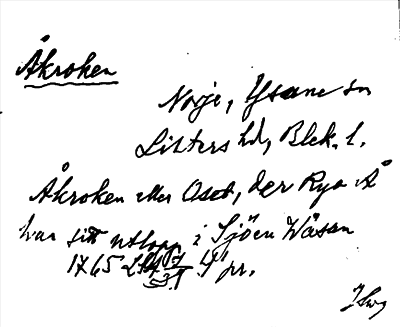 Åkroken
Norje, Ysane sn
Listers hd, Blek. l.
Åkroken eller Oset, der Rya Å
har sitt utlopp i Sjöen Wäsan
1765 4° pr.